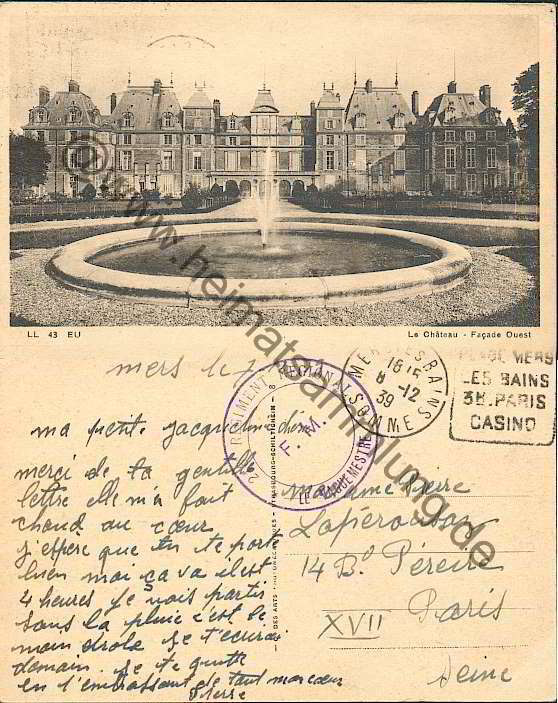 LL 43 EU
Le Château - Façade Ouest
mers le
MERS LES BAINS
1815
8 -12
39
SOMME
PLAGE MERS
LES BAINS
3H. PARIS
CASINO
REGIMENT REGIONAL
F. M.
LE VAGUEMESTRE
ma petite Jacqueline chérie
merci de ta gentille
lettre elle m'a fait
chaud au cœur
j'espère que tu te porte
bien moi ça va il est
4 heures je vais partir
sous la pluie c'est
moin drole je t'écrirai
demain. je te quitte
en t'embrassant de tout mon cœur
Pierre
madame Pierre
Lapérousse
14 Bd Péreire
Paris
XVII
Seine
www.heimatsammlung.de